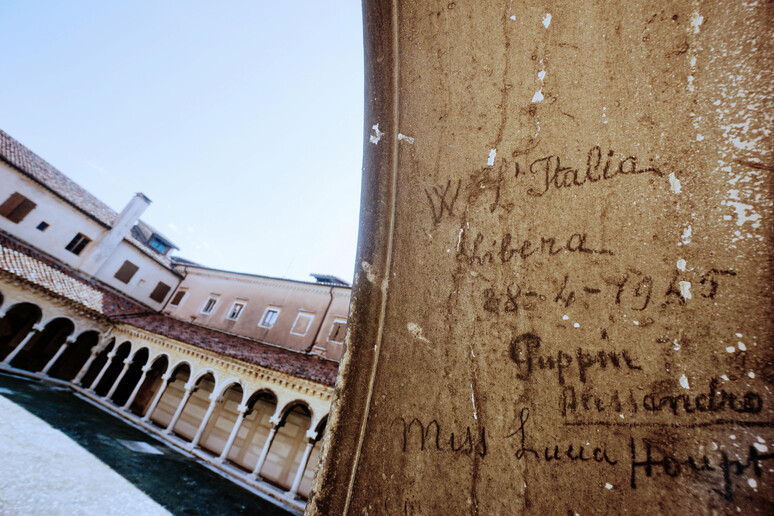 W L'Italia
Libera
28-4-1945
Puppin
Alessandro
Miss Houpt